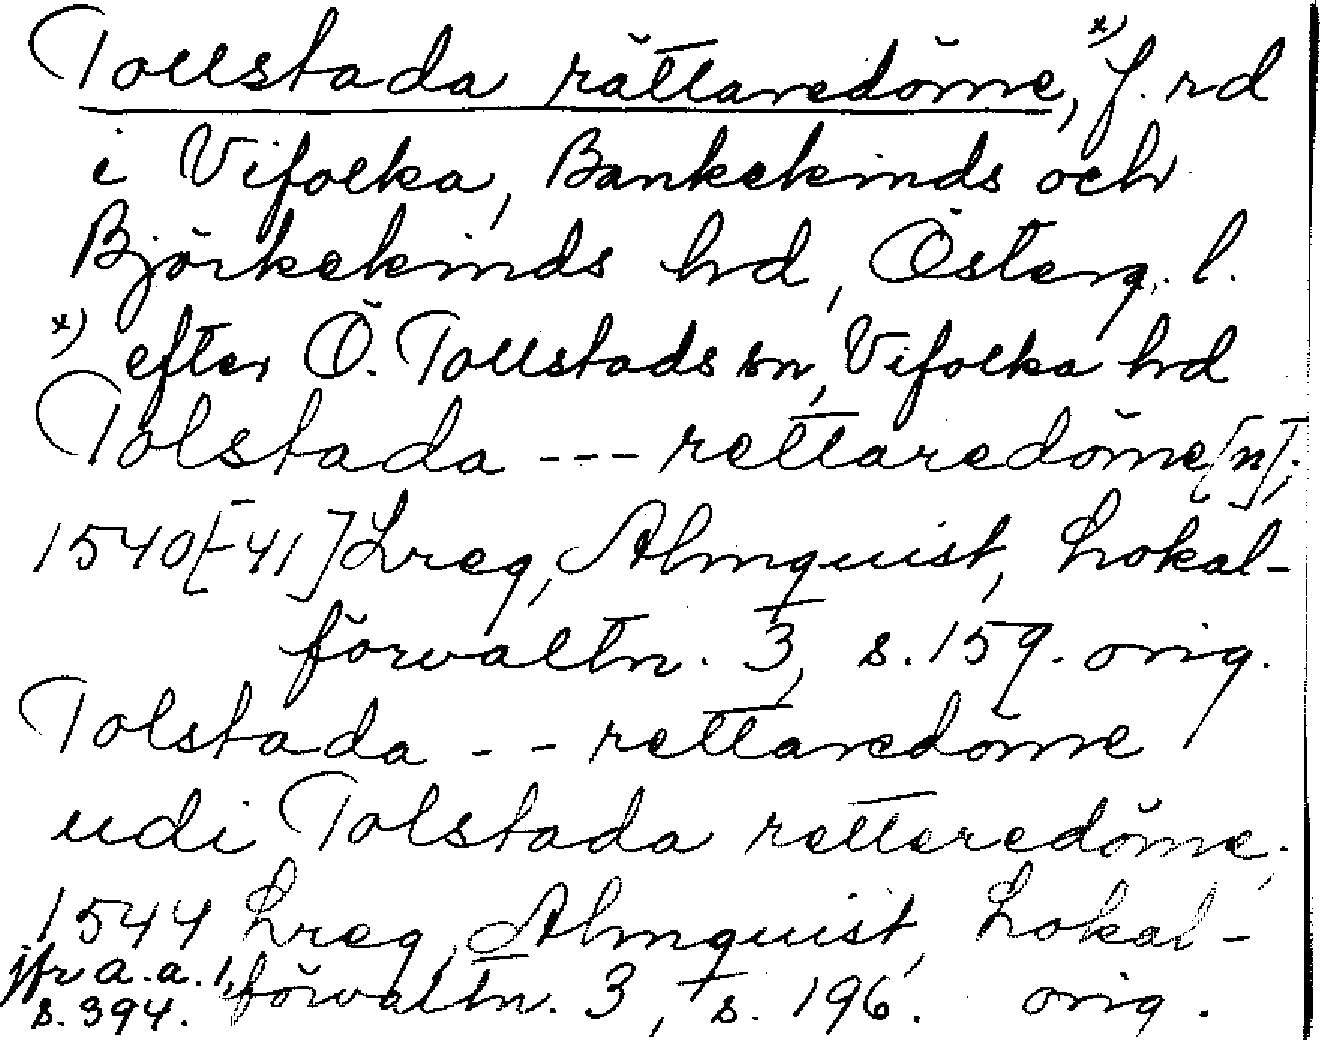 Tollstada rättaredöme, x) f. rd
i Vifolka, Bankekinds och
Björkekinds hd, Österg. l.
x) efter Ö. Tollstads sn, Vifolka hd
Tolstada --- rettaredöme[n];
1540[-41] Lreg, Almquist, Lokal-
förvaltn. 3, s. 159. orig.
Tolstada -- rettaredöme
udi Tolstada retteredöme;
1544 Lreg, Almquist, Lokal-
jfr a. a. 1, förvaltn. 3, s. 196. orig.
s. 394.